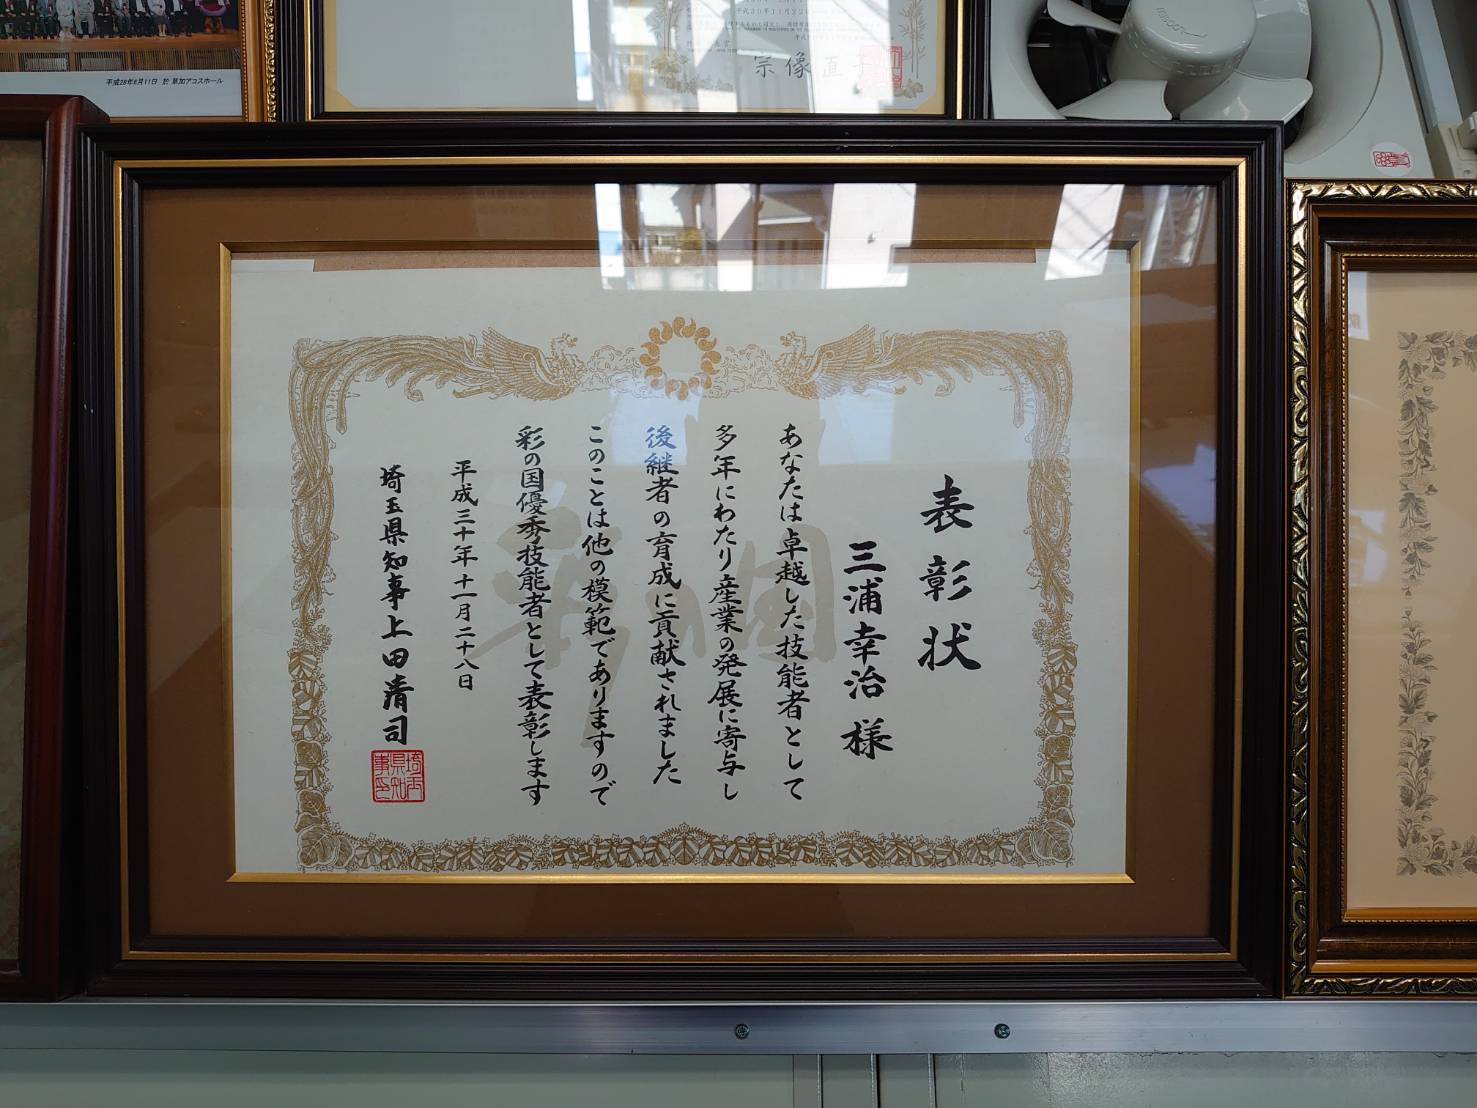 表彰状
三浦幸治 様
あなたは卓越した技能者として
多年にわたり産業の発展に寄与し
後継者の育成に貢献されました
このことは他の模範でありますので
彩の国優秀技能者として表彰します
平成三十年十一月二十八日
埼玉県知事 上田清司
埼玉県知事印
平成28年6月11日 於 草加アコスホール
平成30年11月22日
宗像直子